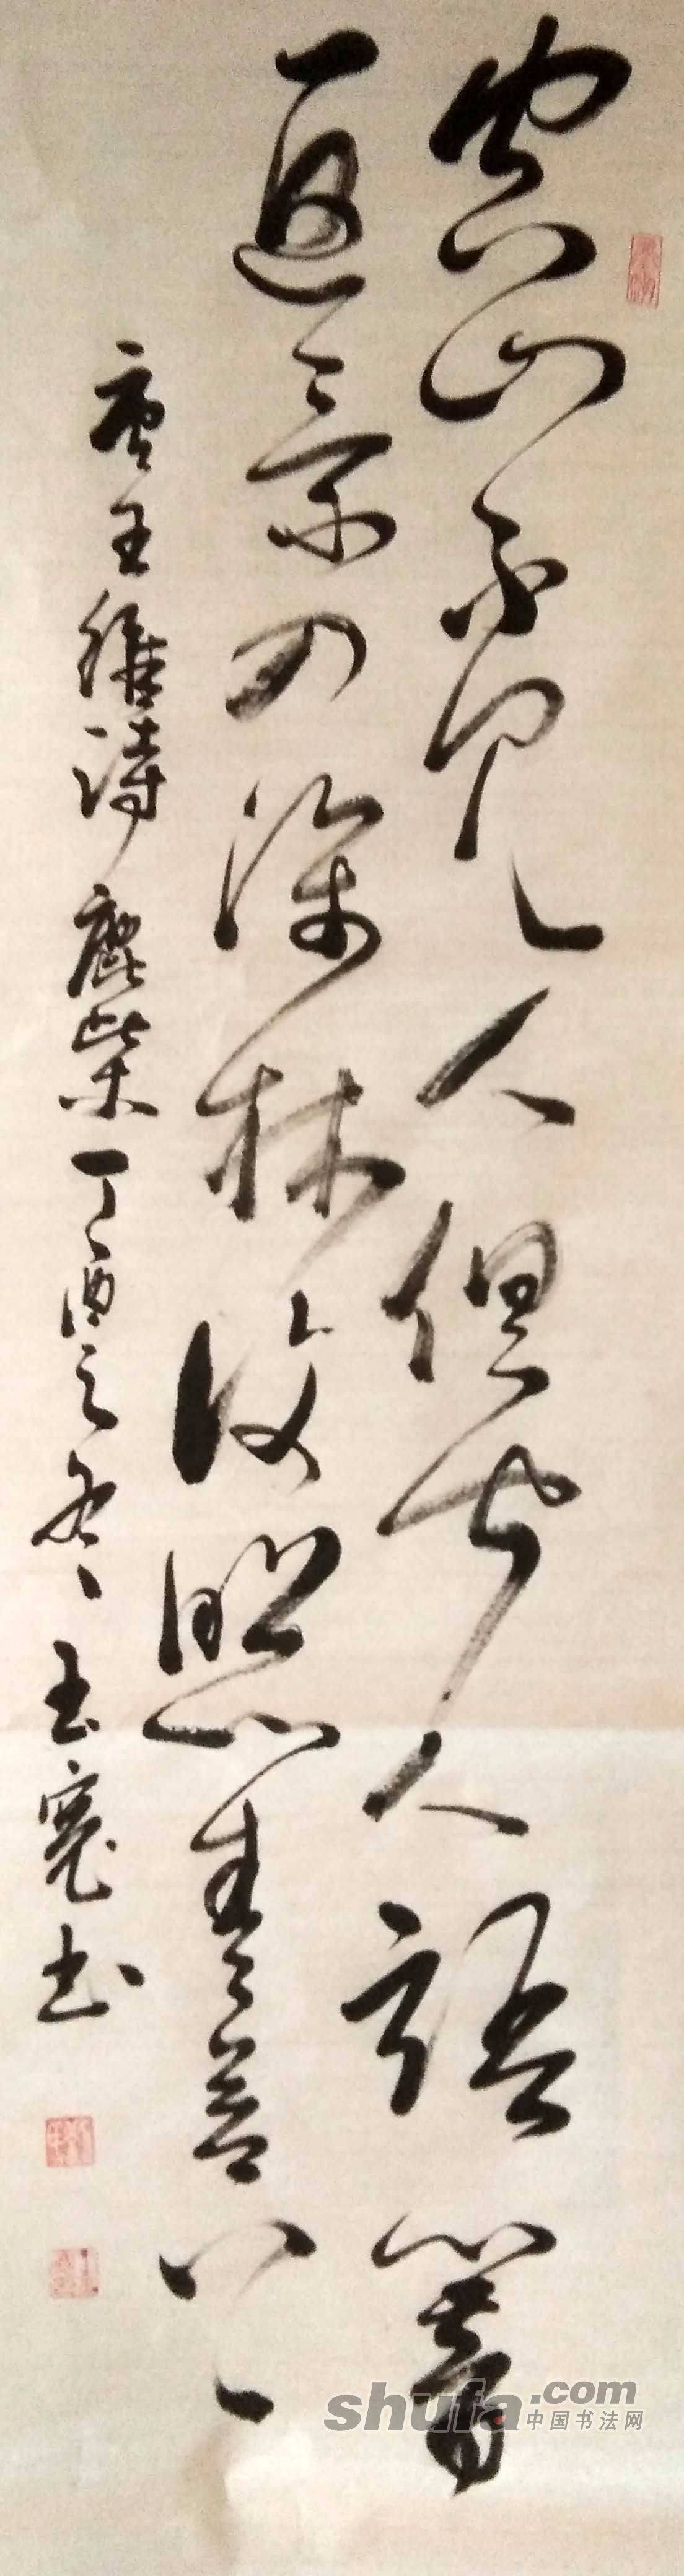 空山不見人但聞人語響
返景入深林復照青苔上
唐王維詩鹿柴丁酉之冬玉寬书
shufa.com
中国书法网